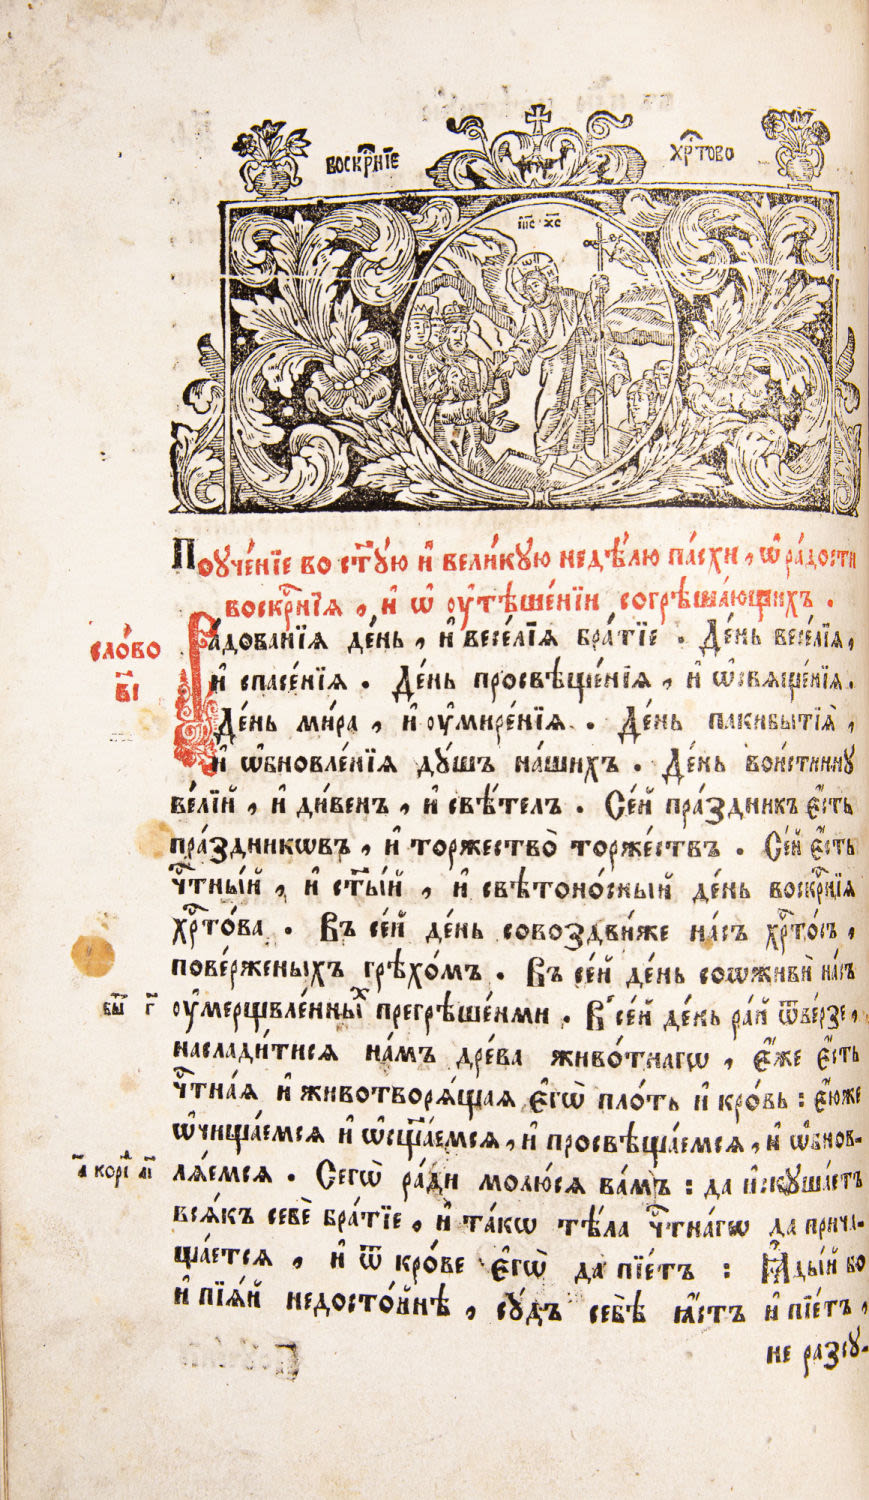 воскрⷭ҇нїе хрⷭ҇тово
І҆и҃с Х҃с
Поуче́нїе во ст҃ꙋ́ю и҆ вели́кꙋю недѣ́лю па́схи, ѡ҆ ра́дости
воскрⷭ҇нїѧ, и҆ ѡ҆ оу҆тѣше́нїи согрѣша́ющихъ.
сло́во
в҃і
Ра́дованїѧ де́нь, и҆ весе́лїѧ бра́тїе. Де́нь весе́лїѧ,
и҆ спасе́нїѧ. Де́нь просвѣще́нїѧ, и҆ ѡ҆свѧще́нїѧ.
Де́нь ми́ра, и҆ оу҆мире́нїѧ. Де́нь пакибытїѧ̀,
и҆ ѡ҆бновле́нїѧ дꙋ́шъ на́шихъ. Де́нь вои́стиннꙋ
ве́лїй, и҆ ди́венъ, и҆ свѣ́телъ. Се́й пра́здникъ є҆́сть
пра́здникѡвъ, и҆ торжество̀ торже́ствъ. Се́й є҆́сть
чⷭ҇тны́й, и҆ ст҃ы́й, и҆ свѣтоно́сный де́нь воскрⷭ҇нїѧ
хрⷭ҇то́ва. Въ се́й де́нь совоздви́же на́съ хрⷭ҇то́съ,
пове́рженыхъ грѣхо́мъ. Въ се́й де́нь соѡживѝ на́съ
бы҃т г҃
оу҆мерщвле́нныⷯ прегрѣше́нми. В̾ се́й де́нь ра́й ѿве́рзе,
наслади́тисѧ на́мъ дре́ва живо́тнагѡ, є҆́же є҆́сть
чⷭ҇тна́ѧ и҆ животворѧ́щаѧ є҆гѡ̀ пло́ть и҆ кро́вь: є҆́юже
ѡ҆чища́емсѧ и҆ ѡ҆сщ҃а́емсѧ, и҆ просвѣща́емсѧ, и҆ ѡ҆бнов-
а҃ корⷤ а҃і
лѧ́емсѧ. Сегѡ̀ ра́ди молю́сѧ ва́мъ: да и҆скꙋша́етъ
всѧ́къ себѐ бра́тїе, и҆ та́кѡ тѣ́ла чⷭ҇тна́гѡ да прича-
ща́етсѧ, и҆ ѿ кро́ве є҆гѡ̀ да пїе́тъ: Ꙗ҆ды́й бо
и҆ пїѧ́й недосто́йнѣ, сꙋ́дъ себѣ̀ ꙗ҆́стъ и҆ пїе́тъ,
не разсꙋ-